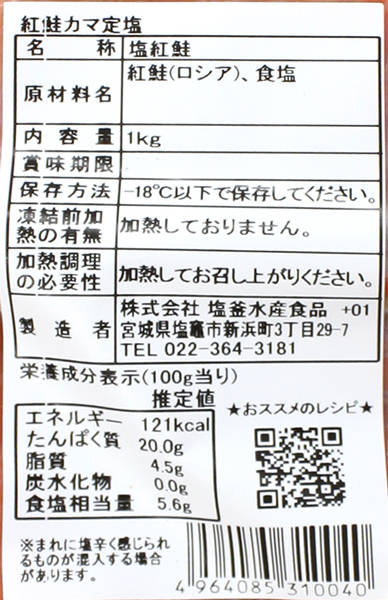 紅鮭カマ定塩
名称 塩紅鮭
原材料名 紅鮭(ロシア)、食塩
内容量 1kg
賞味期限
保存方法 -18℃以下で保存してください。
凍結前加熱の有無 加熱しておりません。
加熱調理の必要性 加熱してお召し上がりください。
製造者 株式会社 塩釜水産食品 +01
宮城県塩竈市新浜町3丁目29-7
TEL 022-364-3181
栄養成分表示(100g当り)
推定値
エネルギー 121kcal
たんぱく質 20.0g
脂質 4.5g
炭水化物 0.0g
食塩相当量 5.6g
★おススメのレシピ★
※まれに塩辛く感じられ
るものが混入する場合
があります。
4 964085 310040